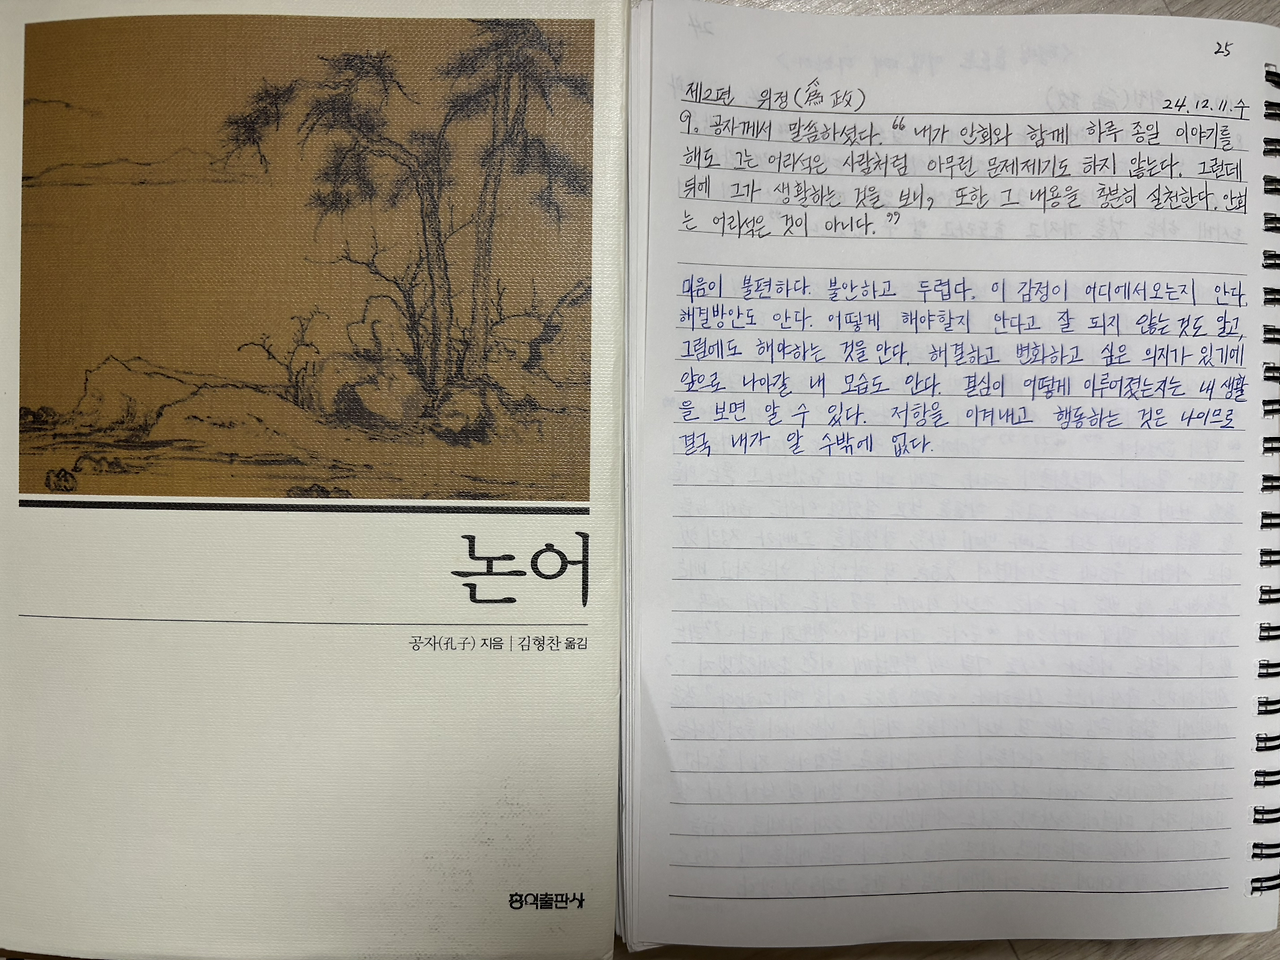 논어
공자(孔子) 지음 | 김형찬 옮김
홍익출판사
25
제2편 위정(爲政) 24.12.11.수
9. 공자께서 말씀하셨다. "내가 안회와 함께 하루 종일 이야기를
해도 그는 어리석은 사람처럼 아무런 문제제기도 하지 않는다. 그런데
뒤에 그가 생활하는 것을 보니, 또한 그 내용을 충분히 실천한다. 안회
는 어리석은 것이 아니다."
마음이 불편하다. 불안하고 두렵다. 이 감정이 어디에서오는지 안다.
해결방안도 안다. 어떻게 해야할지 안다고 잘 되지 않는 것도 알고,
그럼에도 해야하는 것을 안다. 해결하고 변화하고 싶은 의지가 있기에
앞으로 나아갈 내 모습도 안다. 결심이 어떻게 이루어졌는지는 내 생활
을 보면 알 수 있다. 저항을 이겨내고 행동하는 것은 나이므로
결국 내가 알 수밖에 없다.